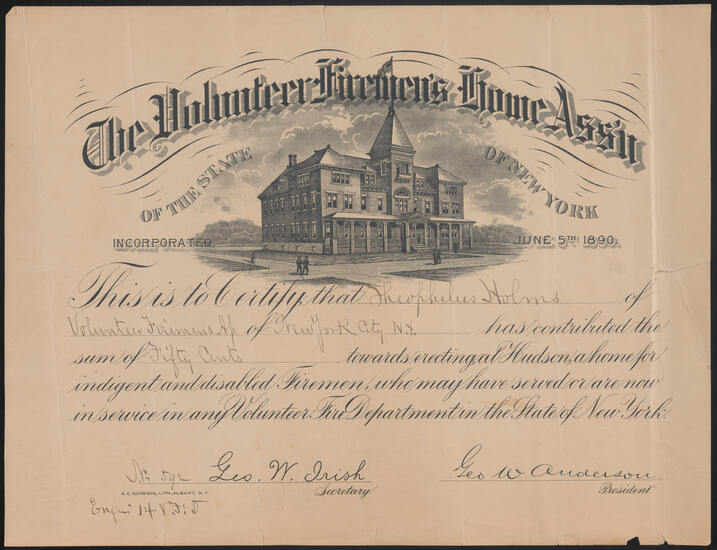 The Volunteer Firemen's Home Ass'n
OF THE STATE OF NEW YORK
INCORPORATED, JUNE 5TH: 1890.
This is to Certify that Theophilus Holms of
Volunteer Firemens As of New York City N.Y. has contributed the
sum of Fifty Cents towards erecting, at Hudson, a home for
indigent and disabled Firemen, who may have served or are now
in service, in any Volunteer Fire Department in the State of New York.
No 592 Geo. W. Irish Geo W Anderson
A.C. GOODWIN, LITH, ALBANY, N.Y. Secretary. President.
Engine 14 V.F.D